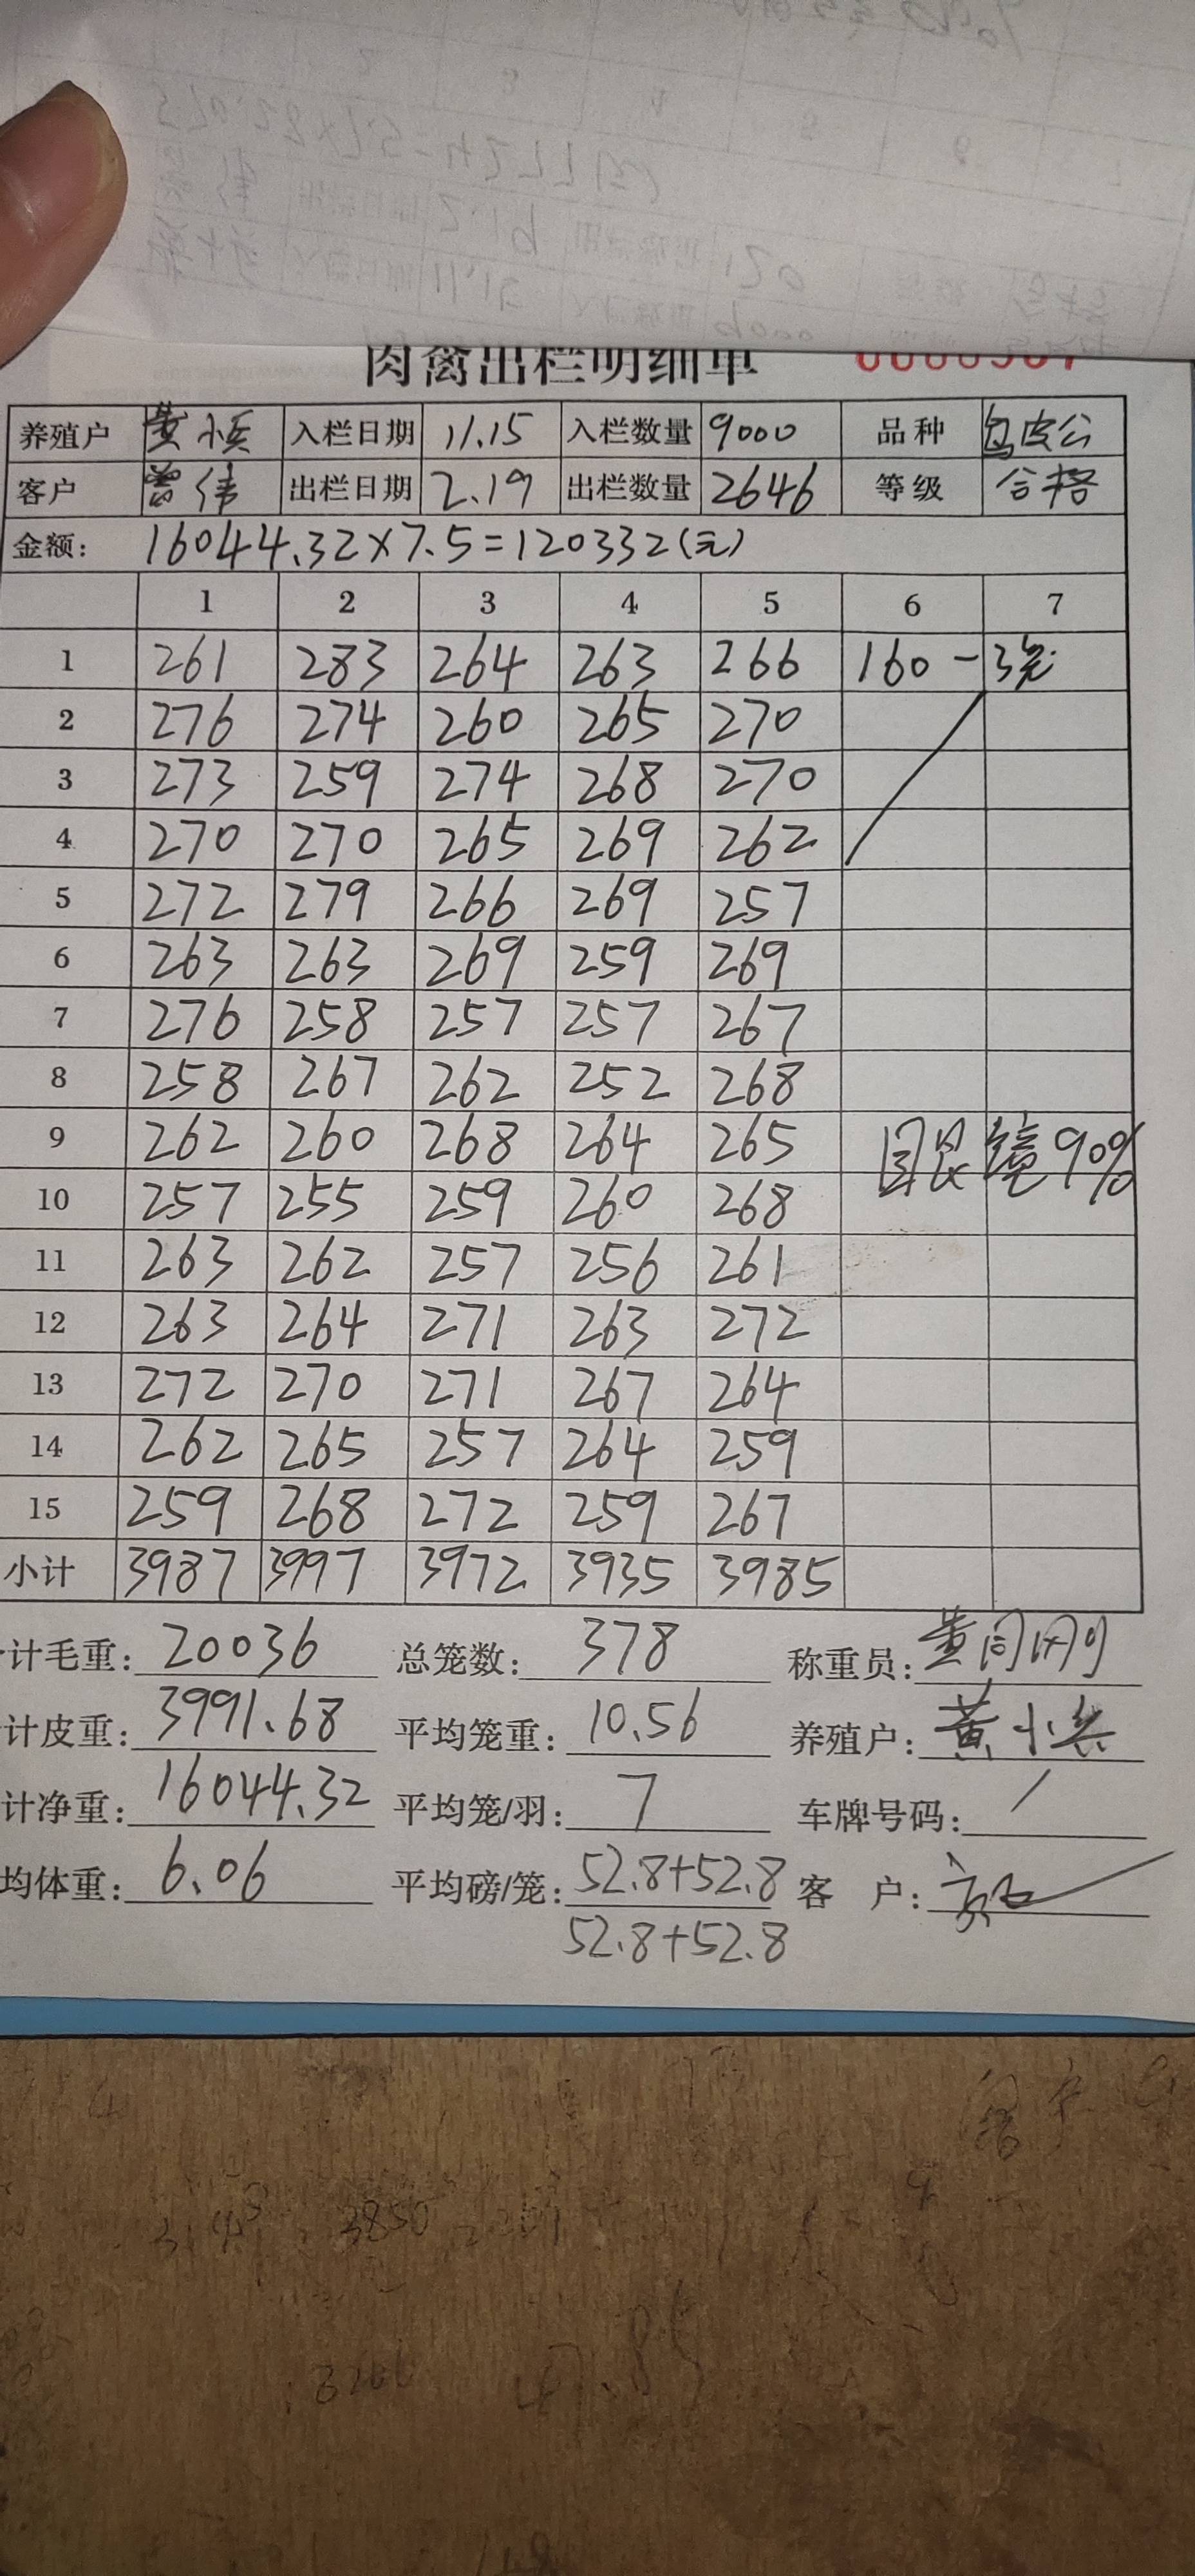 肉禽出栏明细单
养殖户 黄小兵 入栏日期 11.15 入栏数量 9000 品种 乌皮公
客户 曾伟 出栏日期 2.19 出栏数量 2646 等级 合格
金额: 16044.32×7.5=120332(元)
1 2 3 4 5 6 7
1 261 283 264 263 266 160 - 3笼
2 276 274 260 265 270
3 273 259 274 268 270
4 270 270 265 269 262
5 272 279 266 269 257
6 263 263 269 259 269
7 276 258 257 257 267
8 258 267 262 252 268
9 262 260 268 264 265
10 257 255 259 260 268
90%
11 263 262 257 256 261
12 263 264 271 263 272
13 272 270 271 267 264
14 262 265 257 264 259
15 259 268 272 259 267
小计 3987 3997 3972 3935 3985
计毛重: 20036 总笼数: 378 称重员: 黄同刚
计皮重: 3991.68 平均笼重: 10.56 养殖户: 黄小兵
计净重: 16044.32 平均笼/羽: 7 车牌号码: /
均体重: 6.06 平均磅/笼: 52.8+52.8 客 户:
52.8+52.8